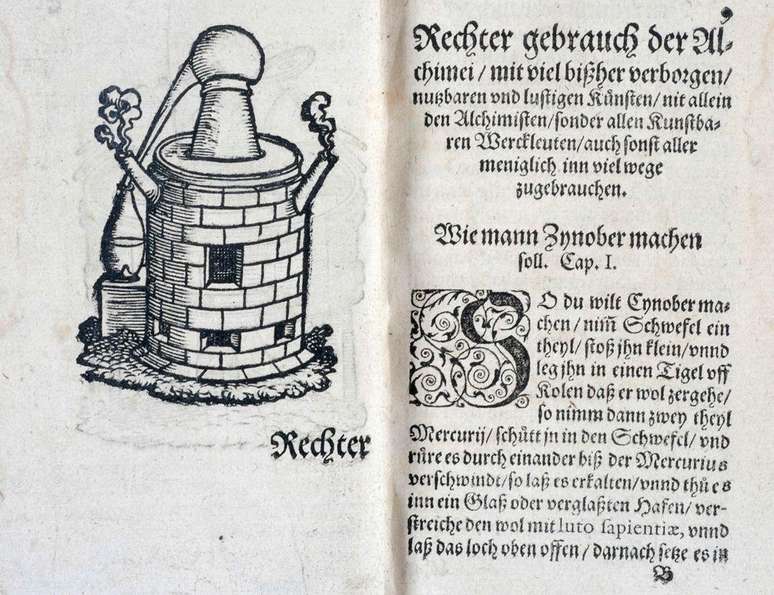 Rechter
Rechter gebrauch der Al-
chimei / mit viel bißher verborgen /
nutzbaren vnd lustigen Künsten / nit allein
den Alchimisten / sonder allen Kunstba-
ren Werckleuten / auch sonst aller
meniglich inn viel wege
zugebrauchen.
Wie mann Zynober machen
soll. Cap. I.
SO du wilt Cynober ma-
chen / nim̃ Schwefel ein
theyl / stoß jhn klein / vnnd
leg jhn in einen Tigel vff
Kolen daß er wol zergehe /
so nimm dann zwey theyl
Mercurij / schütt jn in den Schwefel / vnd
rüre es durch einander biß der Mercurius
verschwindt / so laß es erkalten / vnnd thů es
inn ein Glaß oder verglaßten Hafen / ver-
streiche den wol mit luto sapientiæ, vnnd
laß das loch oben offen / darnach setze es in
B